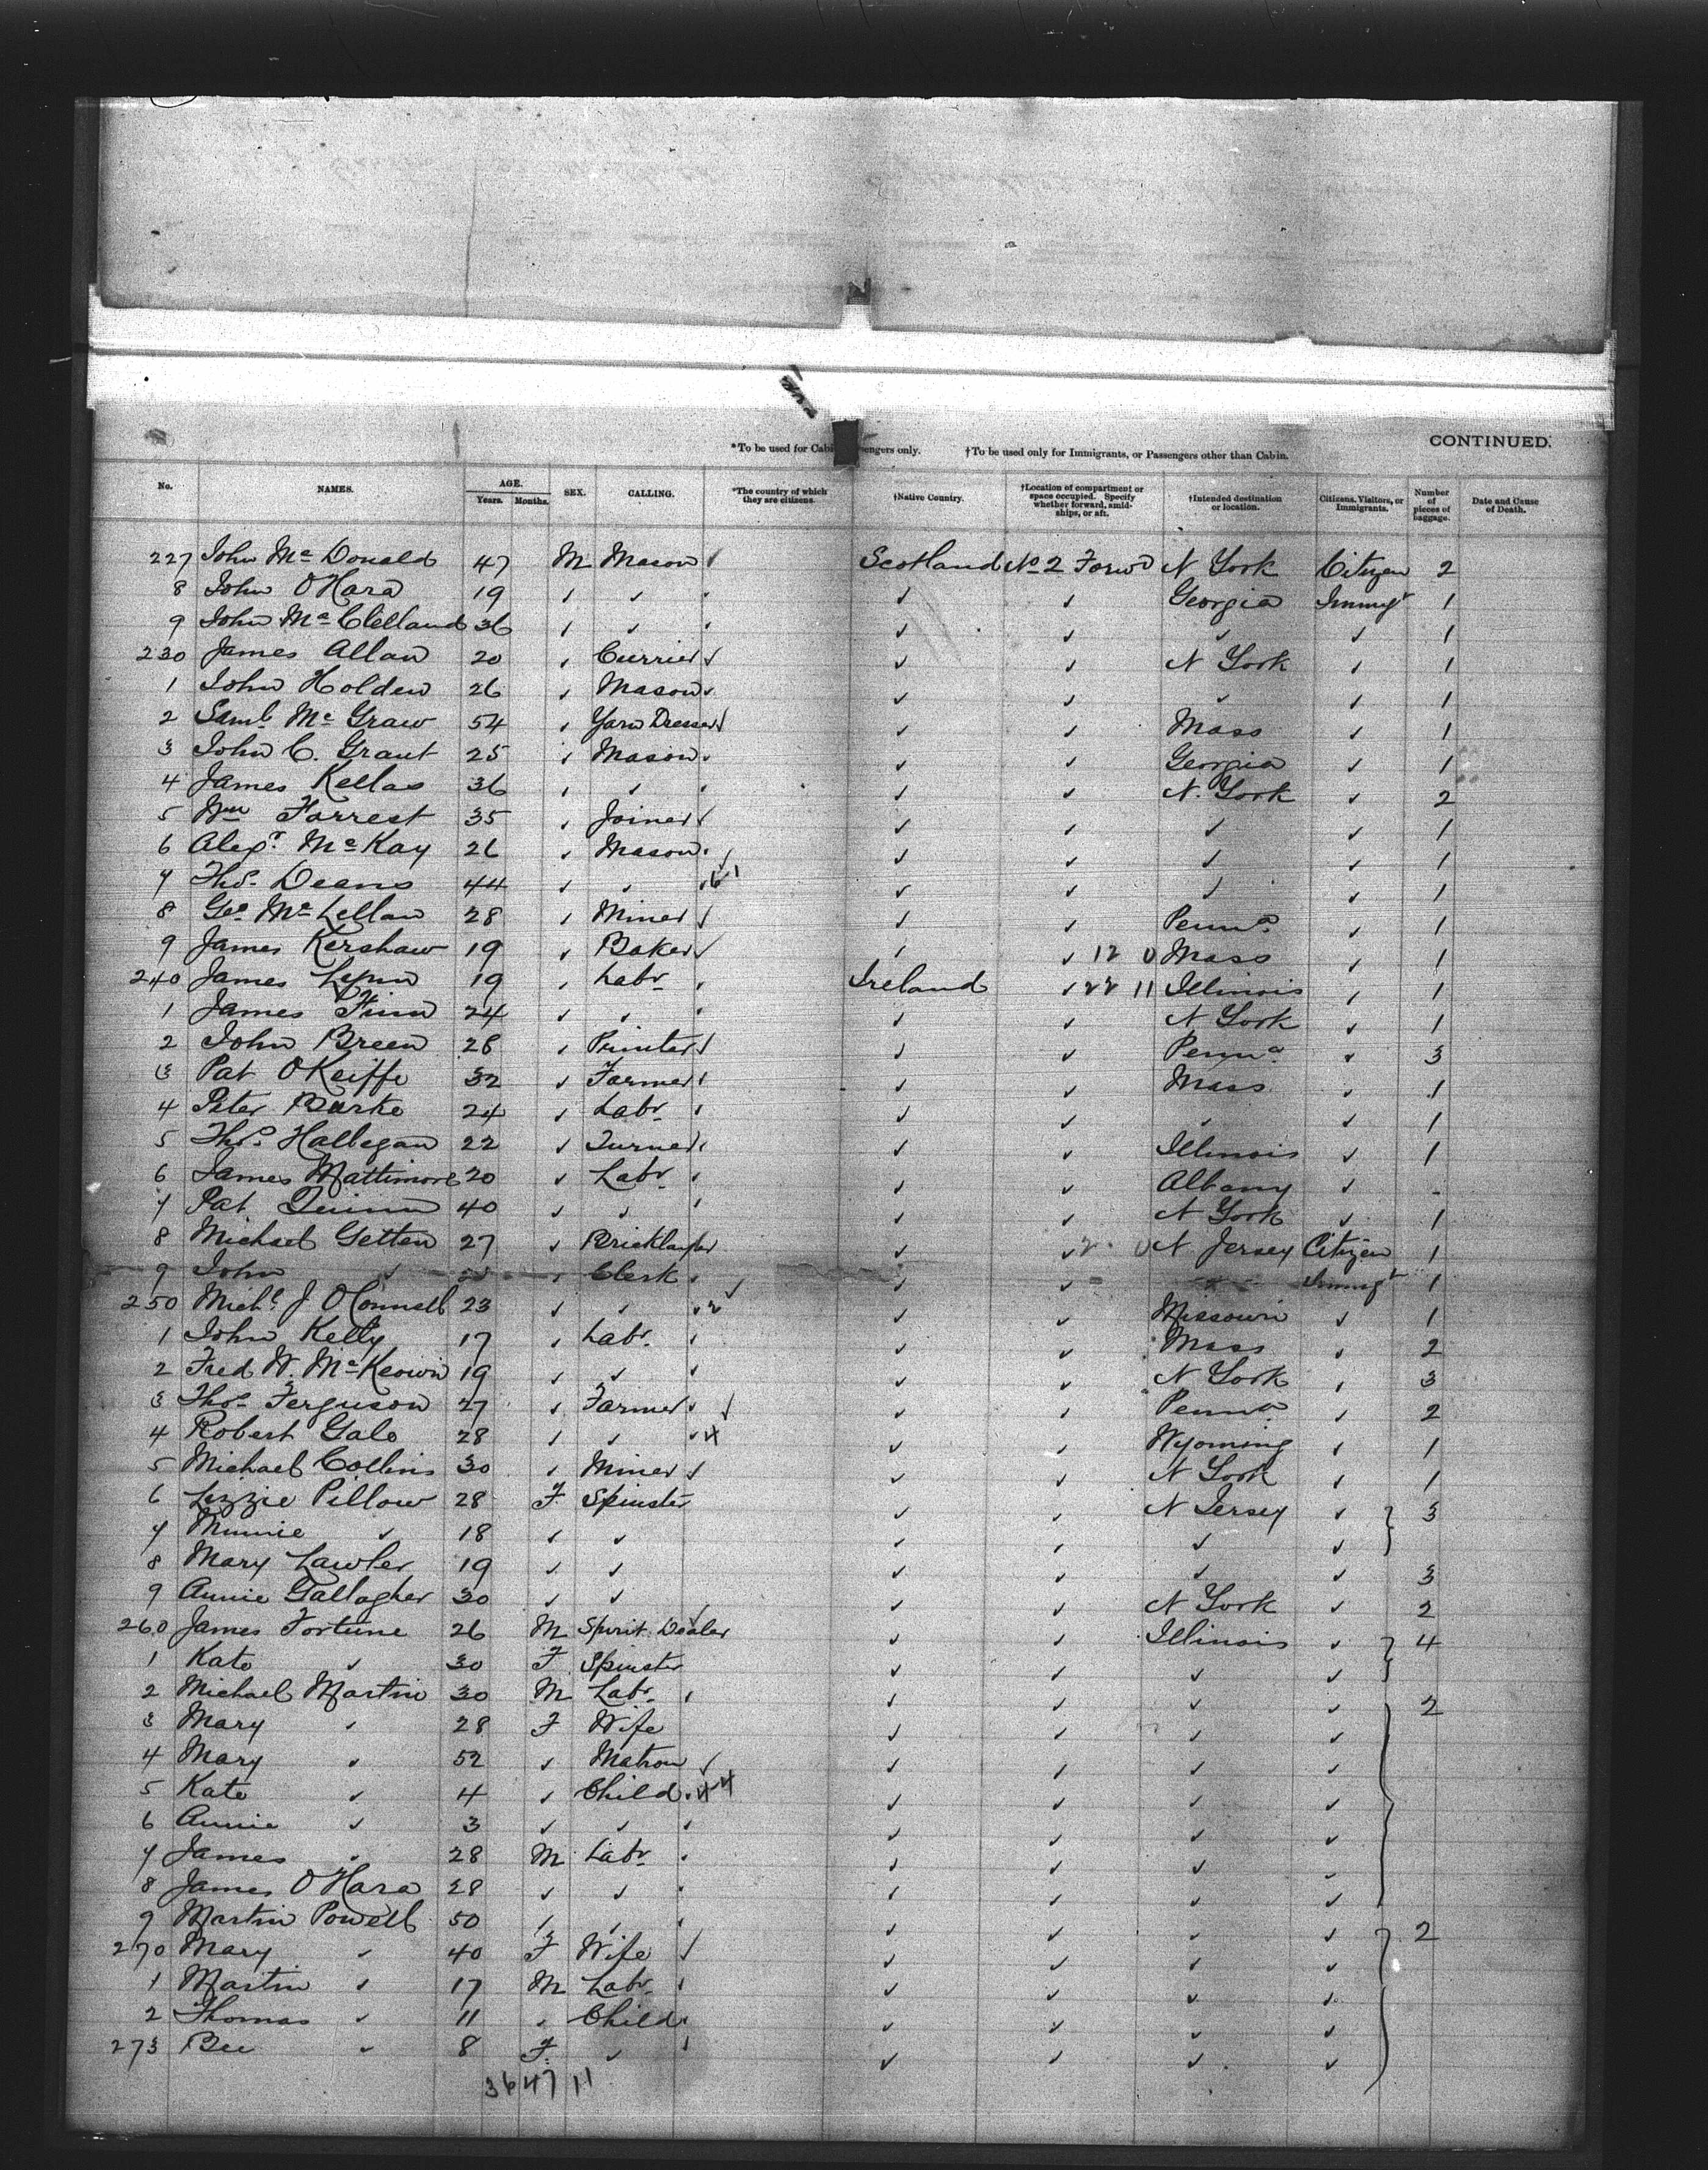 CONTINUED.
*To be used for Cabin Passengers only. †To be used only for Immigrants, or Passengers other than Cabin.
No. NAMES. AGE. Years. Months. SEX. CALLING. *The country of which they are citizens. †Native Country. †Location of compartment or space occupied. Specify whether forward, amidships, or aft. †Intended destination or location. Citizens, Visitors, or Immigrants. Number of pieces of baggage. Date and Cause of Death.
227 John Mc Donald 47 M Mason ✓ Scotland No 2 Forwd N York Citizen 2
8 John O'Hara 19 ✓ ✓ ✓ ✓ Georgia Immigt 1
9 John Mc Clelland 36 ✓ ✓ ✓ ✓ ✓ ✓ 1
230 James Allan 20 ✓ Currier ✓ ✓ ✓ N York ✓ 1
1 John Holden 26 ✓ Mason ✓ ✓ ✓ ✓ 1
2 Saml Mc Graw 54 ✓ Yarn Dresser ✓ ✓ ✓ Mass ✓ 1
3 John C. Grant 25 ✓ Mason ✓ ✓ Georgia ✓ 1
4 James Kellas 36 ✓ ✓ ✓ ✓ N. York ✓ 2
5 Wm Forrest 35 ✓ Joiner ✓ ✓ ✓ ✓ ✓ 1
6 Alexr Mc Kay 26 ✓ Mason ✓ ✓ ✓ ✓ ✓ 1
7 Thos Deans 44 ✓ ✓ 61 ✓ ✓ ✓ ✓ 1
8 Geo Mc Lellan 28 ✓ Miner ✓ ✓ ✓ Penna ✓ 1
9 James Kershaw 19 ✓ Baker ✓ ✓ ✓ 12 0 Mass ✓ 1
240 James Lynn 19 ✓ Labr Ireland ✓ 22 11 Illinois ✓ 1
1 James Finn 24 ✓ ✓ ✓ ✓ N York ✓ 1
2 John Breen 28 ✓ Printer ✓ ✓ ✓ Penna ✓ 3
3 Pat O'Keiffe 32 ✓ Farmer ✓ ✓ Mass ✓ 1
4 Peter Burke 24 ✓ Labr ✓ ✓ ✓ ✓ 1
5 Thos Hallegan 22 ✓ Turner ✓ ✓ Illinois ✓ 1
6 James Mattimore 20 ✓ Labr ✓ ✓ Albany ✓ -
7 Pat Quinn 40 ✓ ✓ ✓ ✓ N York ✓ 1
8 Michael Getten 27 ✓ Bricklayer ✓ ✓ N Jersey Citizen 1
9 John ✓ ✓ Clerk ✓ ✓ Immigt 1
250 Michl J O'Connell 23 ✓ ✓ 2 ✓ ✓ Missouri ✓ 1
1 John Kelly 17 ✓ Labr ✓ ✓ Mass ✓ 2
2 Fred W. Mc Keown 19 ✓ ✓ ✓ ✓ N York ✓ 3
3 Thos Ferguson 27 ✓ Farmer ✓ ✓ ✓ Penna ✓ 2
4 Robert Gale 28 ✓ ✓ 4 ✓ ✓ Wyoming ✓ 1
5 Michael Collins 30 ✓ Miner ✓ ✓ ✓ N York ✓ 1
6 Lizzie Pillow 28 F Spinster ✓ ✓ N Jersey ✓ 3
7 Minnie ✓ 18 ✓ ✓ ✓ ✓ ✓ ✓
8 Mary Lawler 19 ✓ ✓ ✓ ✓ ✓ ✓ 3
9 Annie Gallagher 30 ✓ ✓ ✓ ✓ N York ✓ 2
260 James Fortune 26 M Spirit Dealer ✓ ✓ Illinois ✓ 4
1 Kate ✓ 30 F Spinster ✓ ✓ ✓ ✓
2 Michael Martin 30 M Labr ✓ ✓ ✓ ✓ 2
3 Mary ✓ 28 F Wife ✓ ✓ ✓ ✓
4 Mary ✓ 52 ✓ Matron ✓ ✓ ✓ ✓ ✓
5 Kate ✓ 4 ✓ Child 44 ✓ ✓ ✓ ✓
6 Annie ✓ 3 ✓ ✓ ✓ ✓ ✓ ✓
7 James ✓ 28 M Labr ✓ ✓ ✓ ✓
8 James O'Hara 28 ✓ ✓ ✓ ✓ ✓ ✓
9 Martin Powell 50 ✓ ✓ ✓ ✓ ✓ ✓ 2
270 Mary ✓ 40 F Wife ✓ ✓ ✓ ✓ ✓
1 Martin ✓ 17 M Labr ✓ ✓ ✓ ✓
2 Thomas ✓ 11 ✓ Child ✓ ✓ ✓ ✓
273 Bee ✓ 8 F ✓ ✓ ✓ ✓ ✓
36 47 11